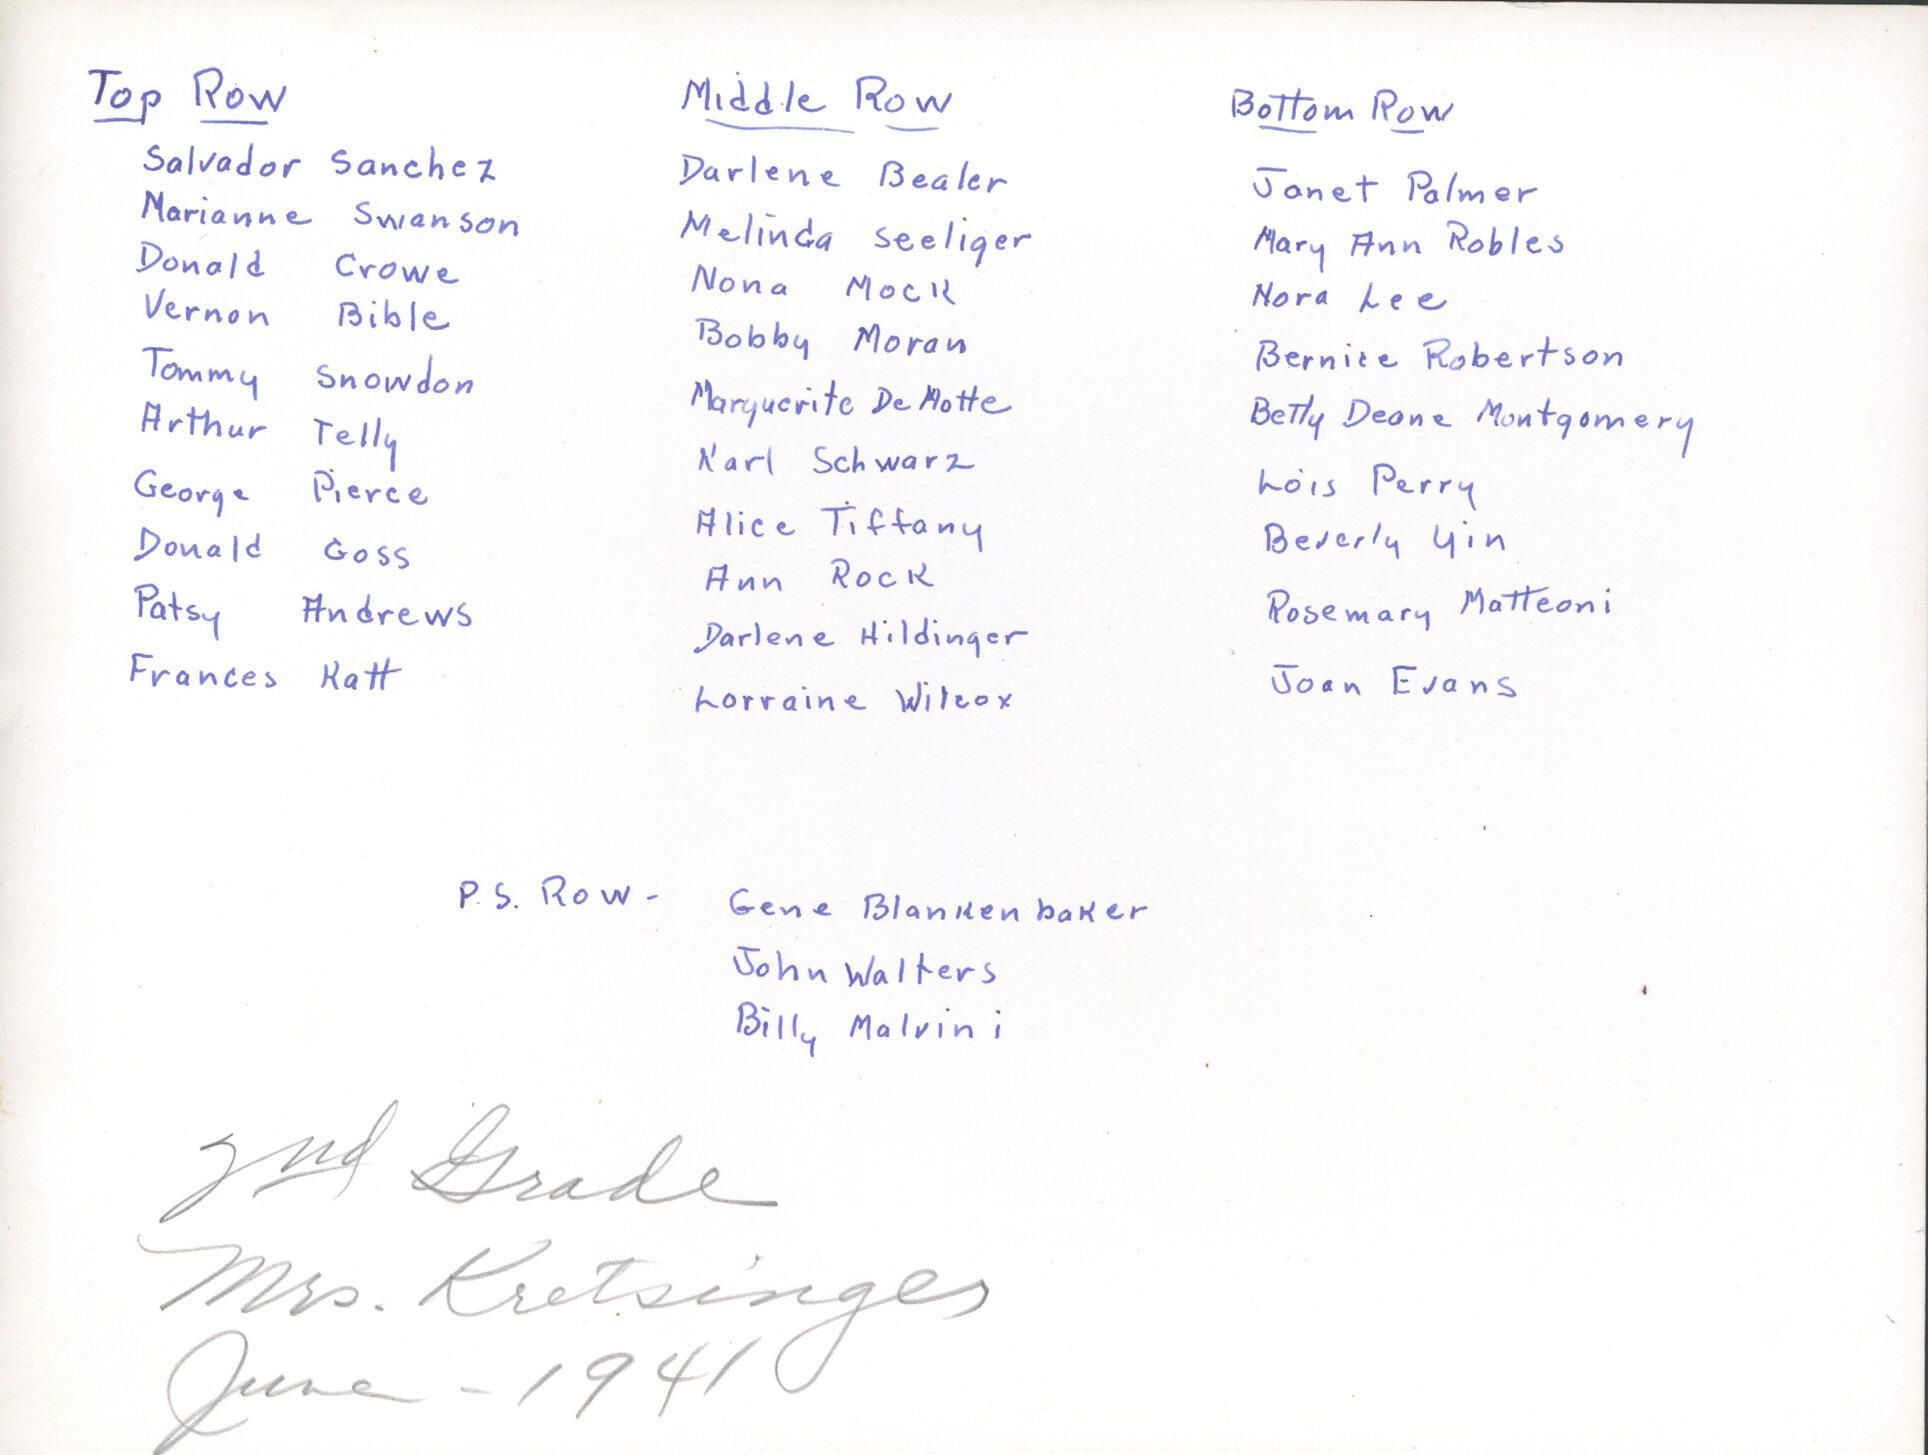 Top Row
Salvador Sanchez
Marianne Swanson
Donald Crowe
Vernon Bible
Tommy Snowdon
Arthur Telly
George Pierce
Donald Goss
Patsy Andrews
Frances Katt
Middle Row
Darlene Bealer
Melinda Seeliger
Nona Mock
Bobby Moran
Marguerite De Motte
Karl Schwarz
Alice Tiffany
Ann Rock
Darlene Hildinger
Lorraine Wilcox
Bottom Row
Janet Palmer
Mary Ann Robles
Nora Lee
Bernice Robertson
Betty Deane Montgomery
Lois Perry
Beverly Yin
Rosemary Matteoni
Joan Evans
P.S. Row - Gene Blankenbaker
John Walters
Billy Malvini
2nd Grade
Mrs. Kretsinger
June - 1941